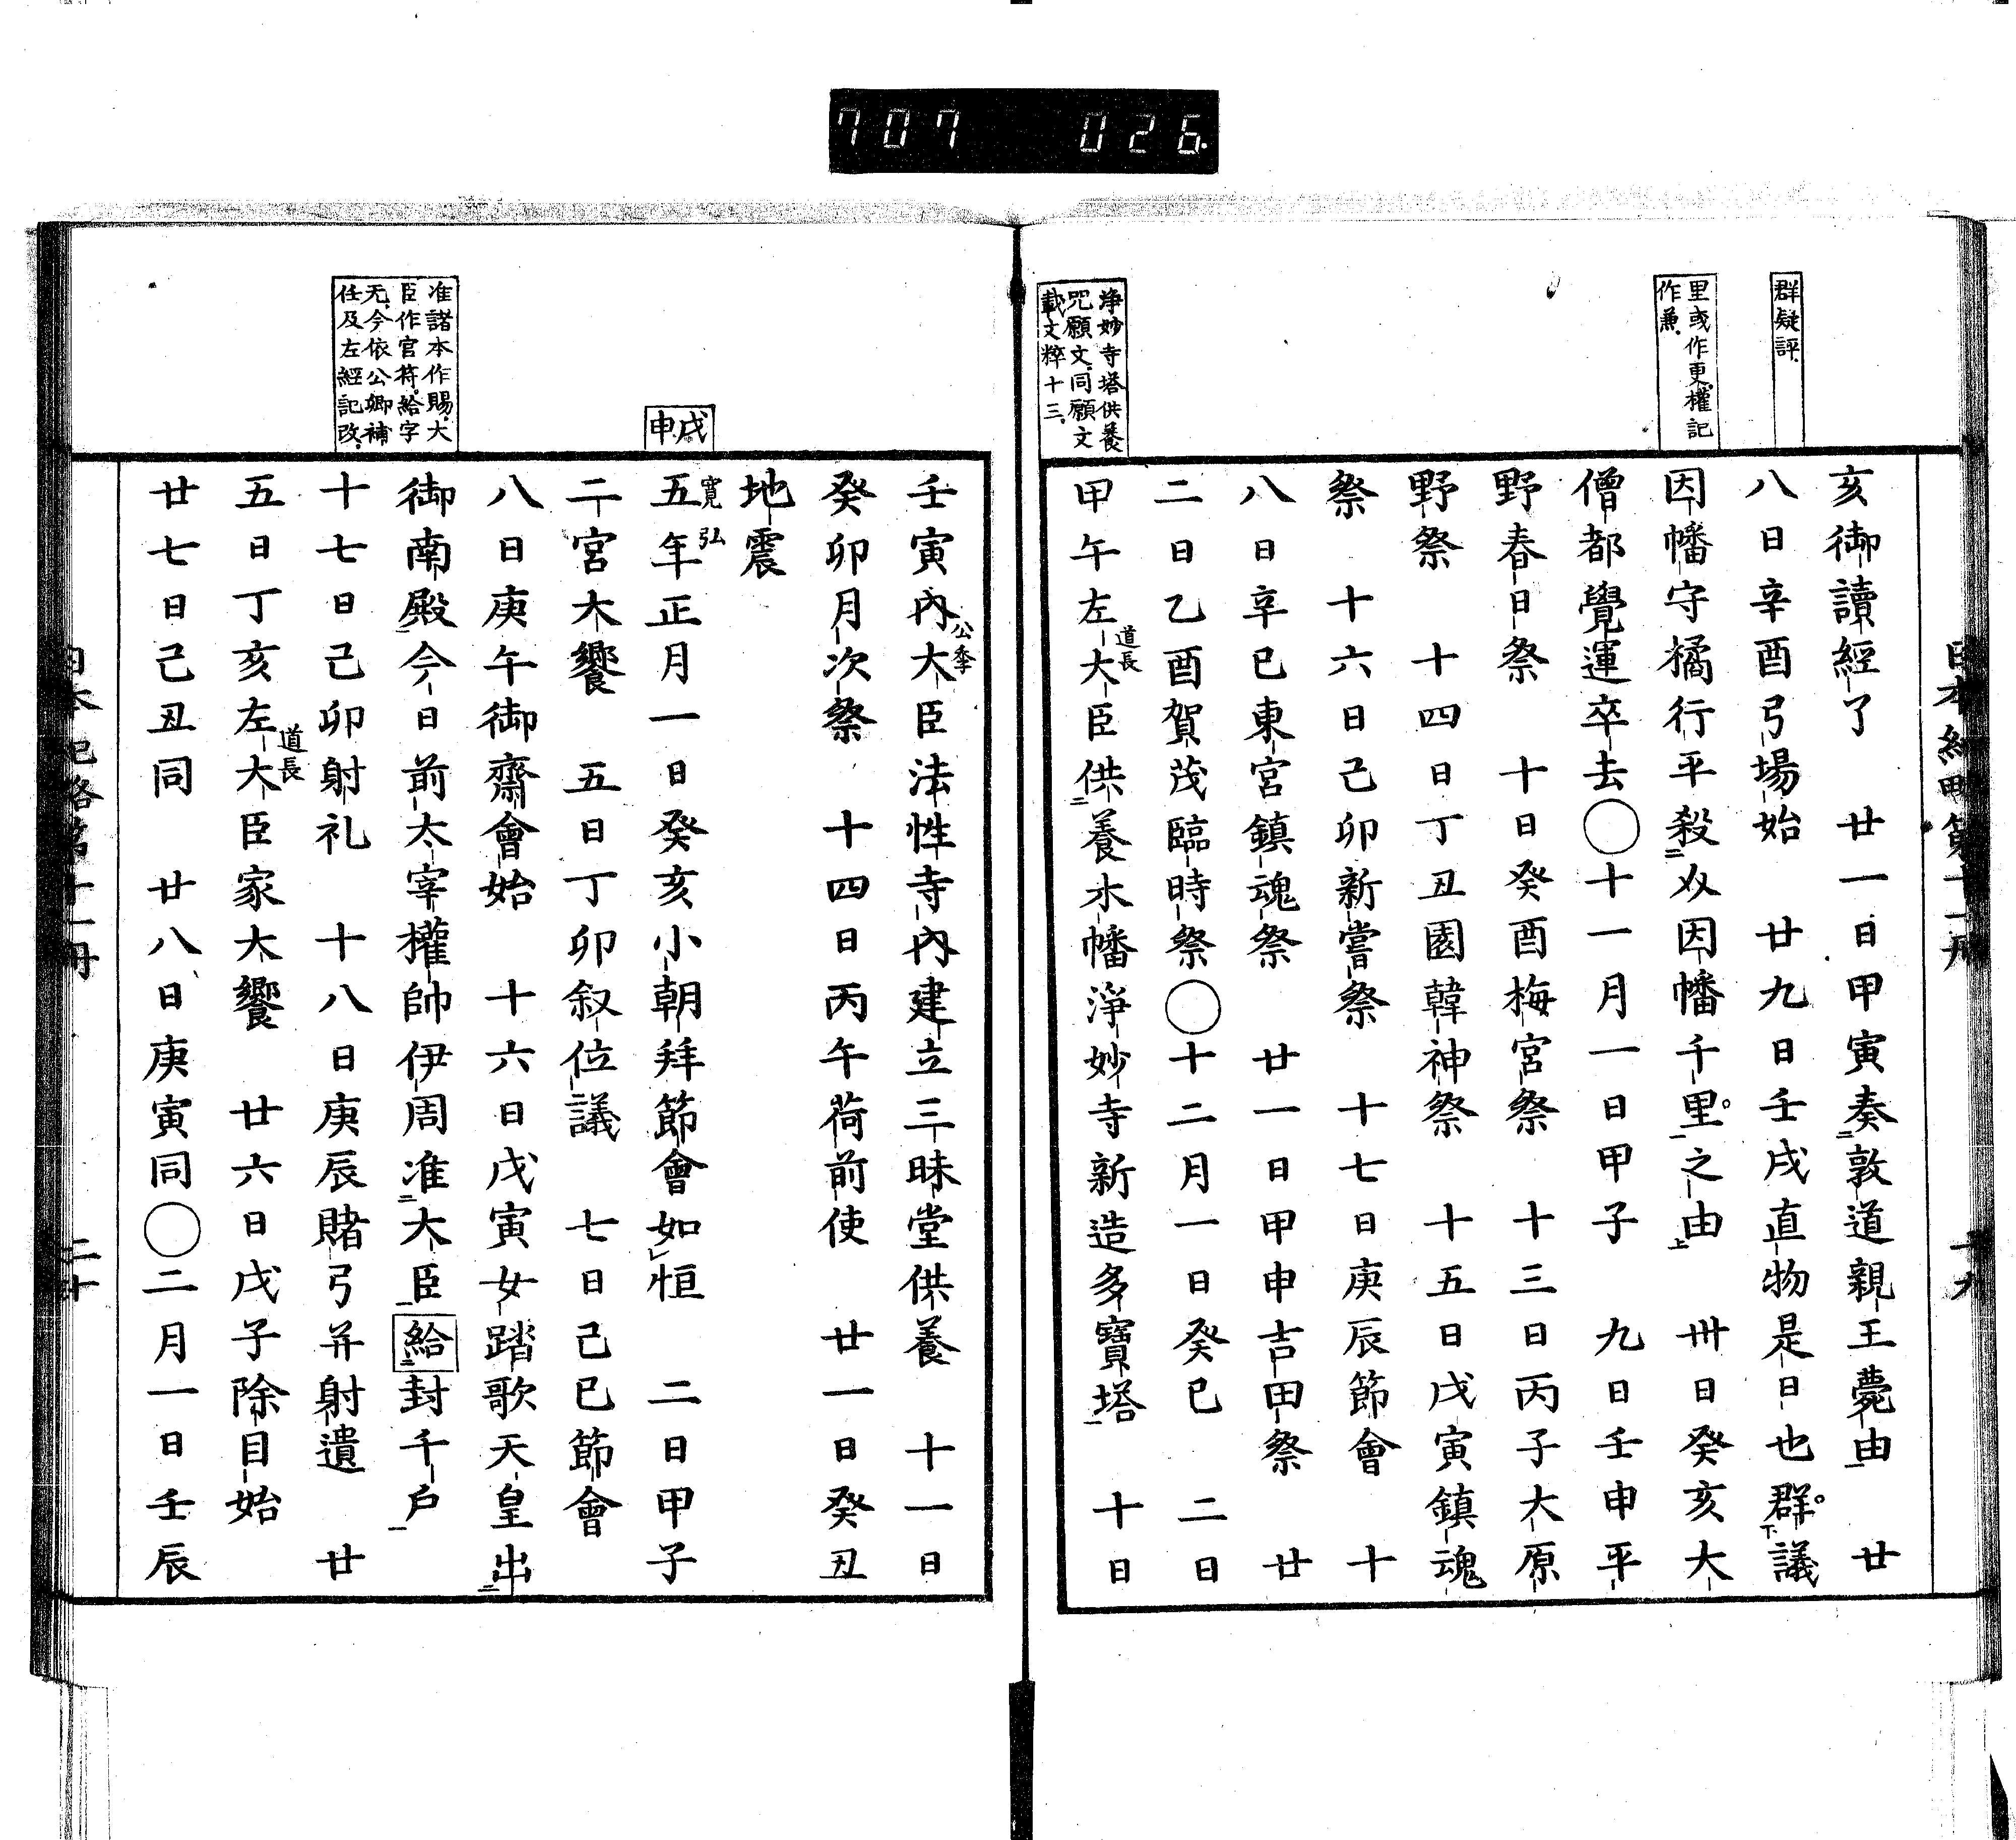 707 026
群疑評
里或作更權記
作兼
淨妙寺塔供養
咒願文同願文
載文粹十三
日本紀略第十一冊 十九
亥御讀經了 廿一日甲寅奏敦道親王薨由 廿
八日辛酉弓場始 廿九日壬戌直物是日也群議
因幡守橘行平殺㕝因幡千里之由 卅日癸亥大
僧都覺運卒去〇十一月一日甲子 九日壬申平
野春日祭 十日癸酉梅宮祭 十三日丙子大原
野祭 十四日丁丑園韓神祭 十五日戊寅鎮魂
祭 十六日己卯新嘗祭 十七日庚辰節會 十
八日辛巳東宮鎮魂祭 廿一日甲申吉田祭 廿
二日乙酉賀茂臨時祭〇十二月一日癸巳 二日
甲午左大臣道長供養木幡淨妙寺新造多寶塔 十日
准諸本作賜大
臣作官符給字
无今依公卿補
任及左經記改
戊申
壬寅內大臣公季法性寺內建立三昧堂供養 十一日
癸卯月次祭 十四日丙午荷前使 廿一日癸丑
地震
寬弘
五年正月一日癸亥小朝拜節會如恒 二日甲子
二宮大饗 五日丁卯叙位議 七日己巳節會
八日庚午御齋會始 十六日戊寅女踏歌天皇出
御南殿今日前太宰權帥伊周准大臣給封千戶
十七日己卯射礼 十八日庚辰賭弓并射遺 廿
五日丁亥左大臣道長家大饗 廿六日戊子除目始
廿七日己丑同 廿八日庚寅同〇二月一日壬辰
日本紀略第十一冊 二十